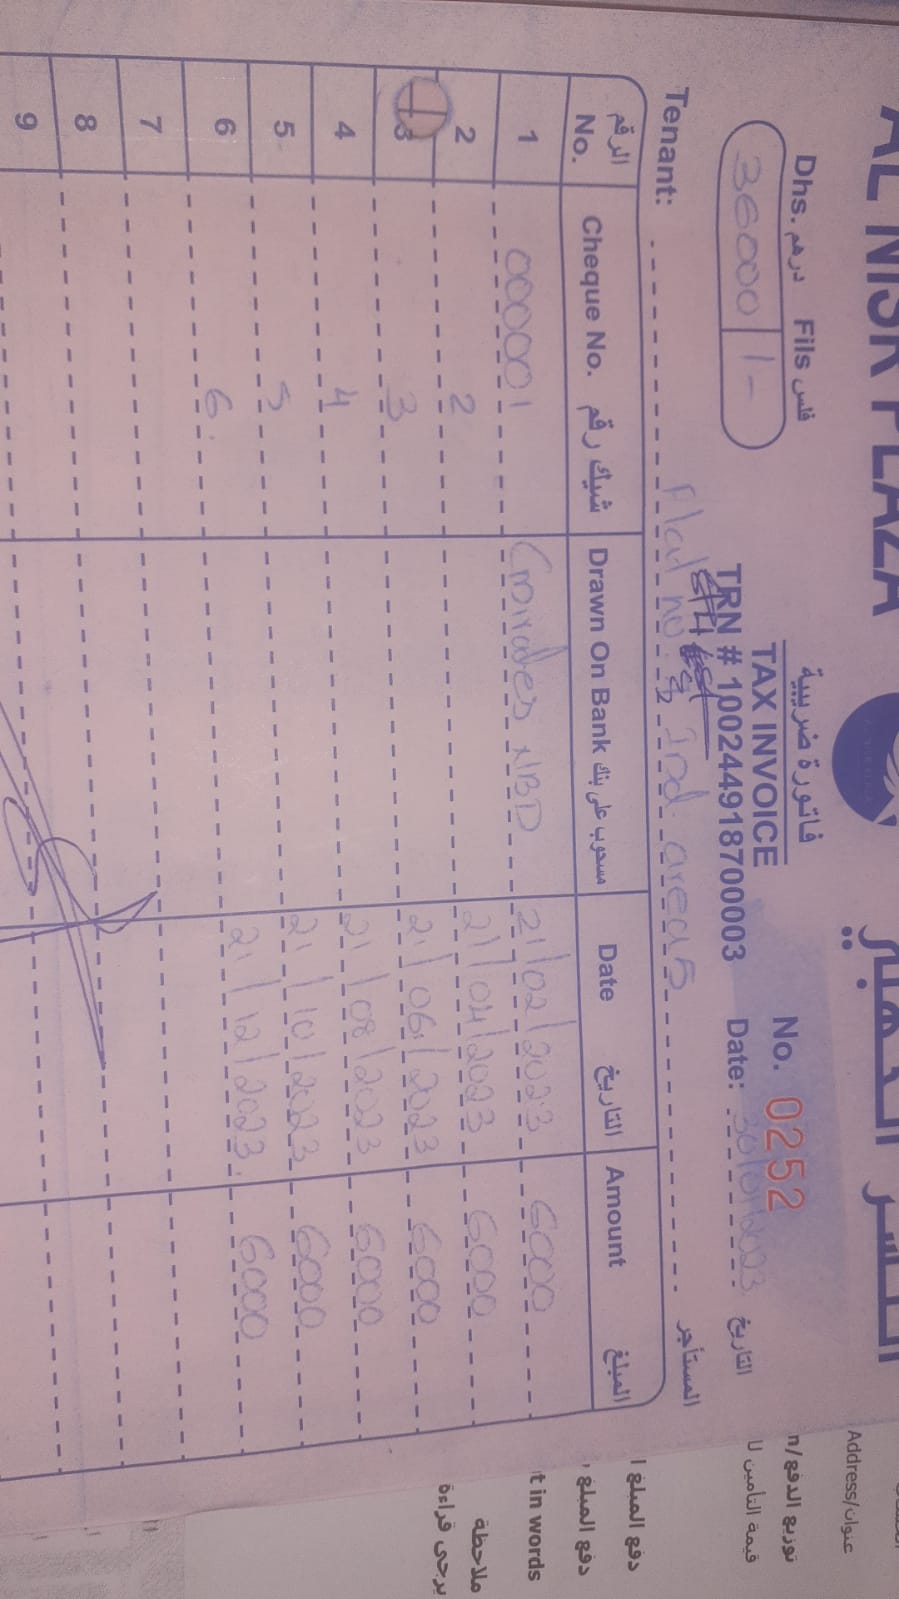 AL NISR PLAZA
Dhs. درهم Fils فلس
36000 /-
فاتورة ضريبية
TAX INVOICE
TRN # 100244918700003
No. 0252
Date: 30/01/2023 التاريخ
Tenant: no. Ind. area 5 المستأجر
الرقم No. Cheque No. شيك رقم Drawn On Bank مسحوب على بنك Date التاريخ Amount المبلغ
1 000001 Emirates NBD 21/02/2023 6000
2 2 21/04/2023 6000
3 3 21/06/2023 6000
4 4 21/08/2023 6000
5 5 21/10/2023 6000
6 6 21/12/2023 6000
7
8
9
Address/عنوان
توزيع الدفع/n
قيمة التأمين
دفع المبلغ
دفع المبلغ
t in words
ملاحظة
يرجى قراءة